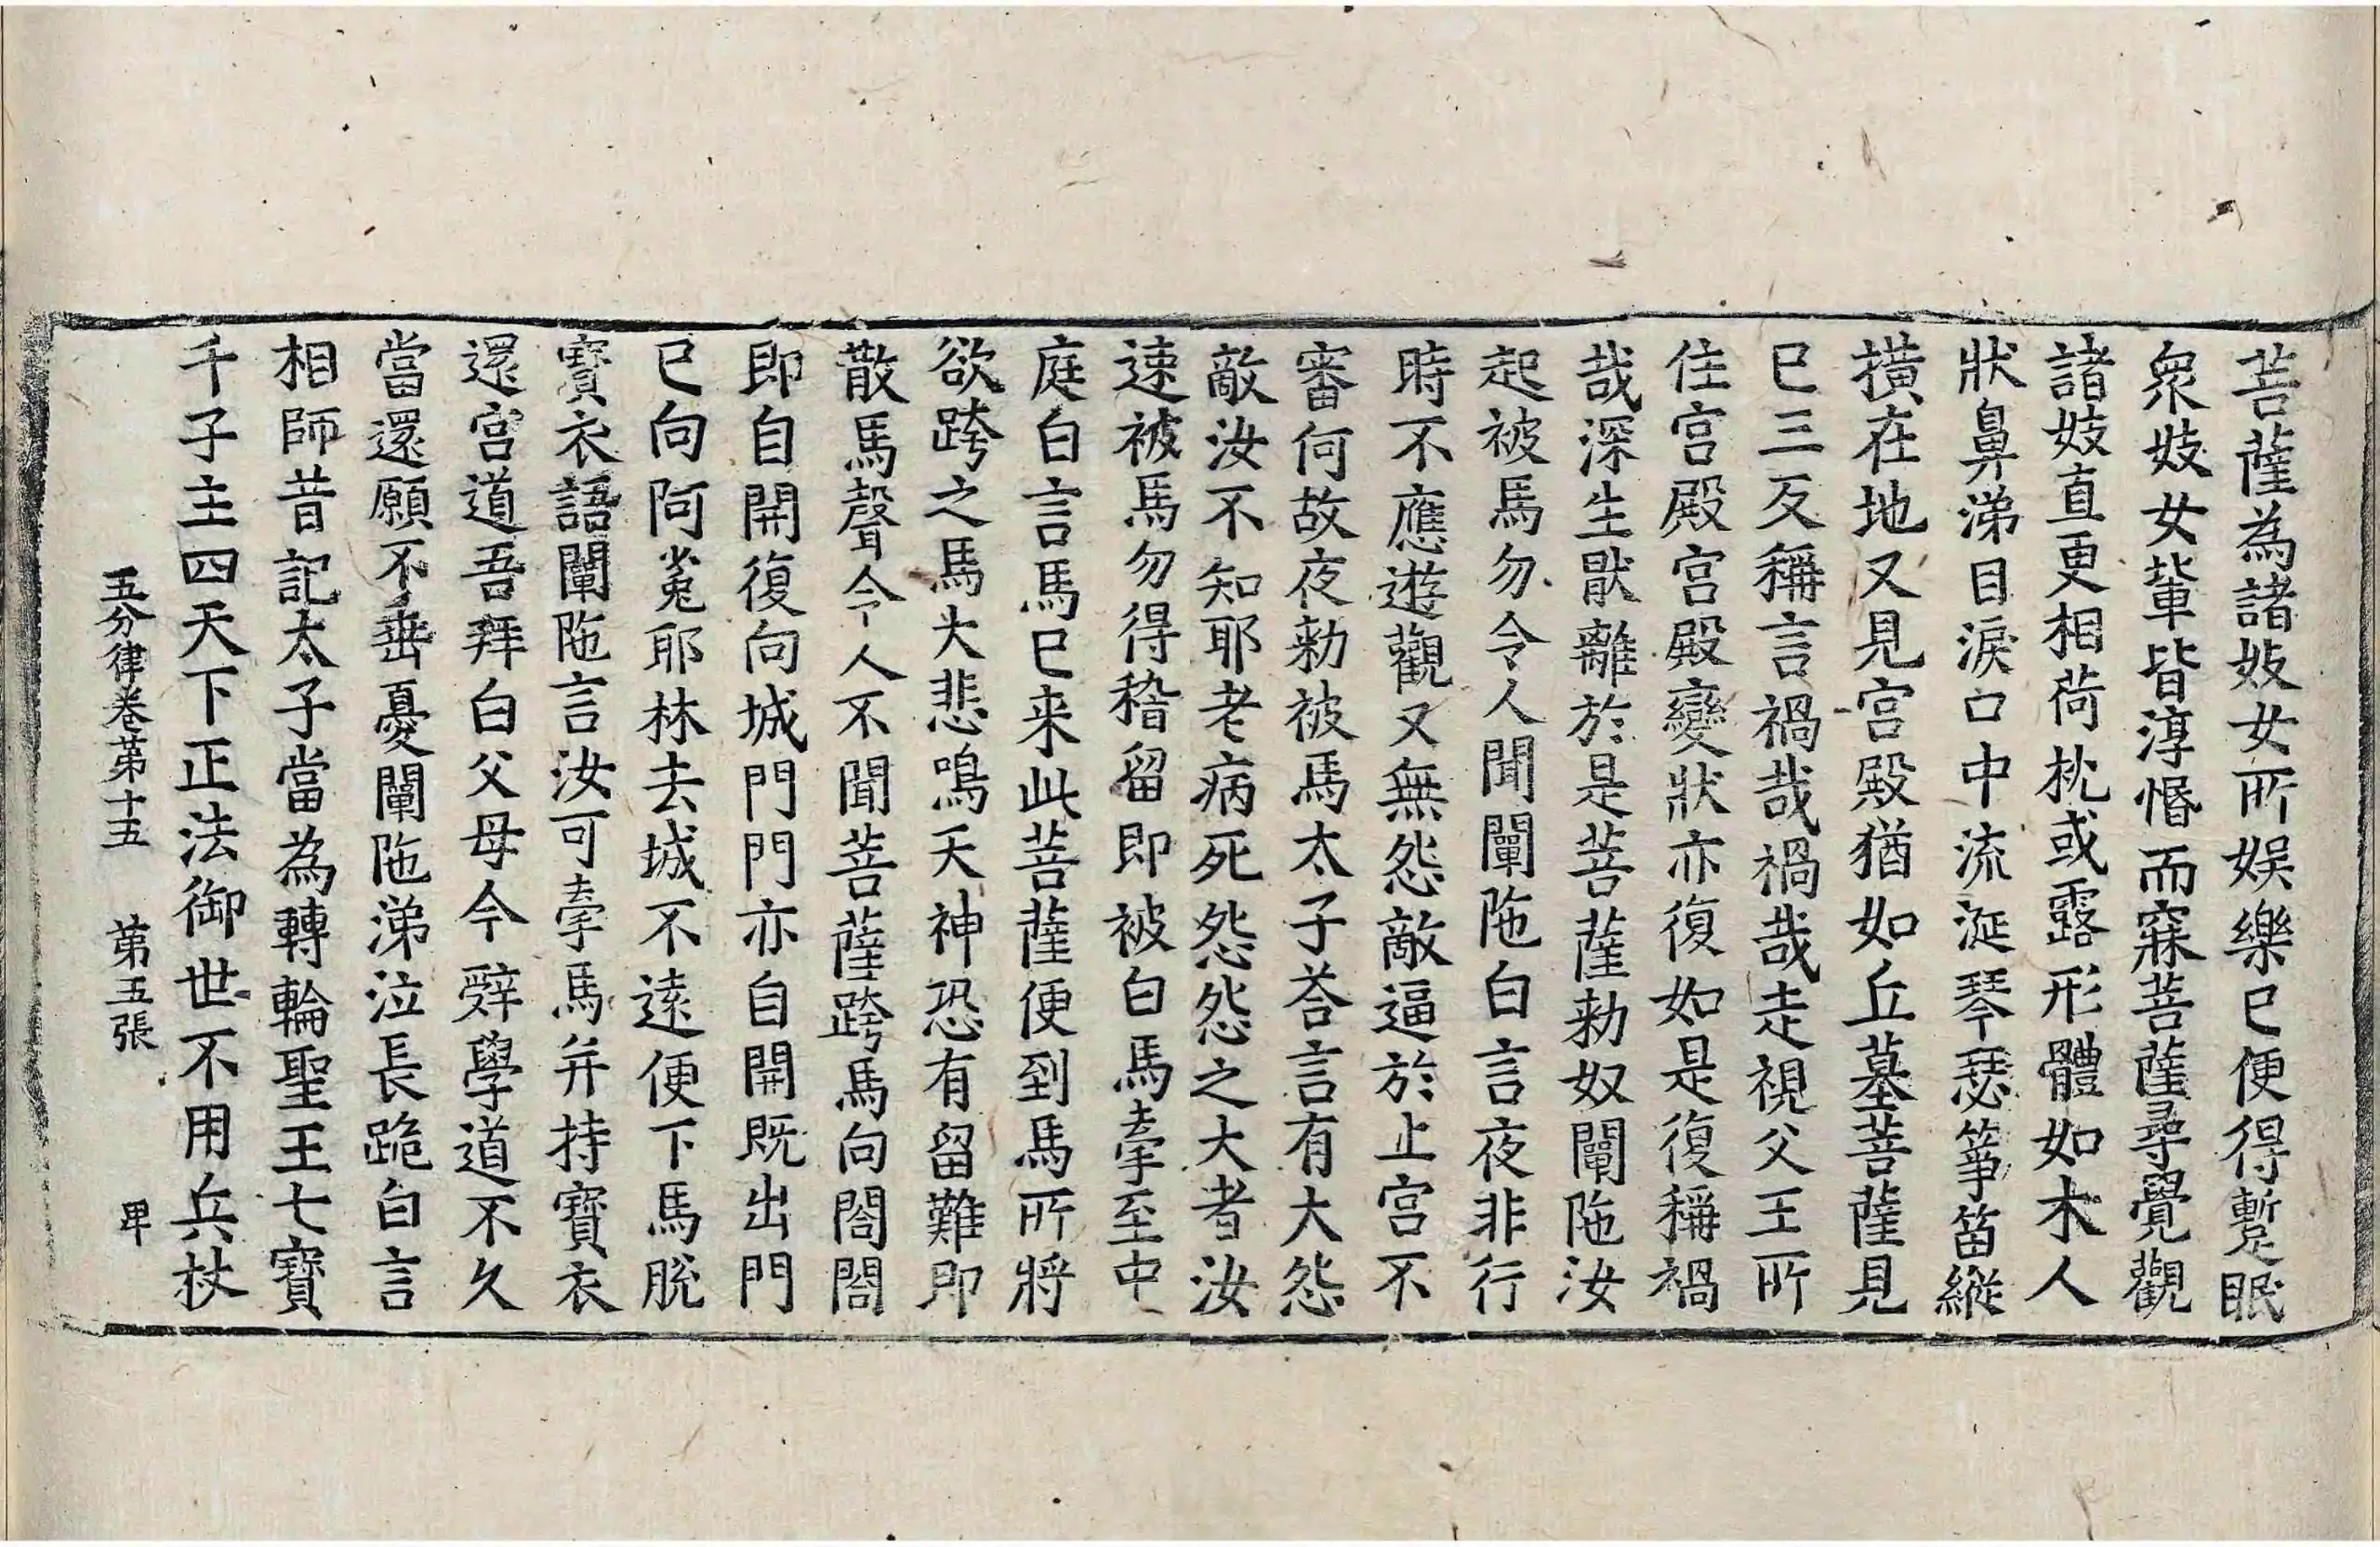 菩薩為諸妓女所娛樂已便得蹔眠
眾妓女輩皆淳惛而寐菩薩尋覺觀
諸妓直更相荷枕或露形體如木人
狀鼻涕目淚口中流涎琴瑟箏笛縱
撗在地又見宮殿猶如丘墓菩薩見
已三反稱言禍哉禍哉走視父王所
住宮殿宮殿變狀亦復如是復稱禍
哉深生猒離於是菩薩勑奴闡陁汝
起被馬勿令人聞闡陁白言夜非行
時不應遊觀又無怨敵逼於止宮不
審何故夜勑被馬太子荅言有大怨
敵汝不知耶老病死怨怨之大者汝
速被馬勿得稽留即被白馬牽至中
庭白言馬已来此菩薩便到馬所將
欲跨之馬大悲鳴天神恐有留難即
散馬聲令人不聞菩薩跨馬向閤閤
即自開復向城門門亦自開既出門
已向阿㝹耶林去城不遠便下馬脫
寶衣語闡陁言汝可牽馬并持寶衣
還宮道吾拜白父母今辭學道不久
當還願不垂憂闡陁涕泣長跪白言
相師昔記太子當為轉輪聖王七寶
千子主四天下正法御世不用兵杖
五分律卷第十五 第五張 甲